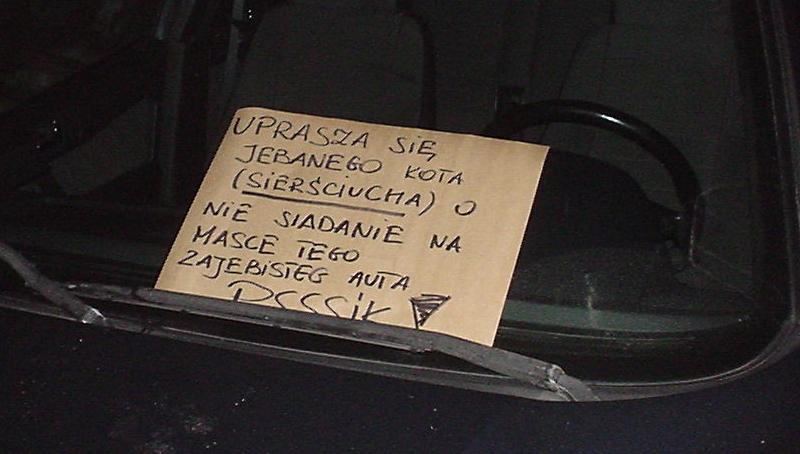 UPRASZA SIĘ
JEBANEGO KOTA
(SIERŚCIUCHA) O
NIE SIADANIE NA
MASCE TEGO
ZAJEBISTEG AUTA